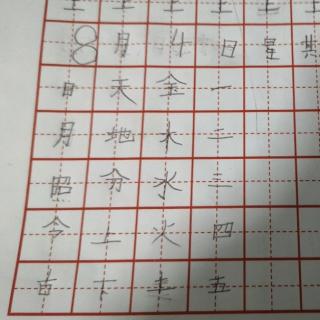 8月 日星
日天金一
月地木二
昭分水三
今上火四
百下土五